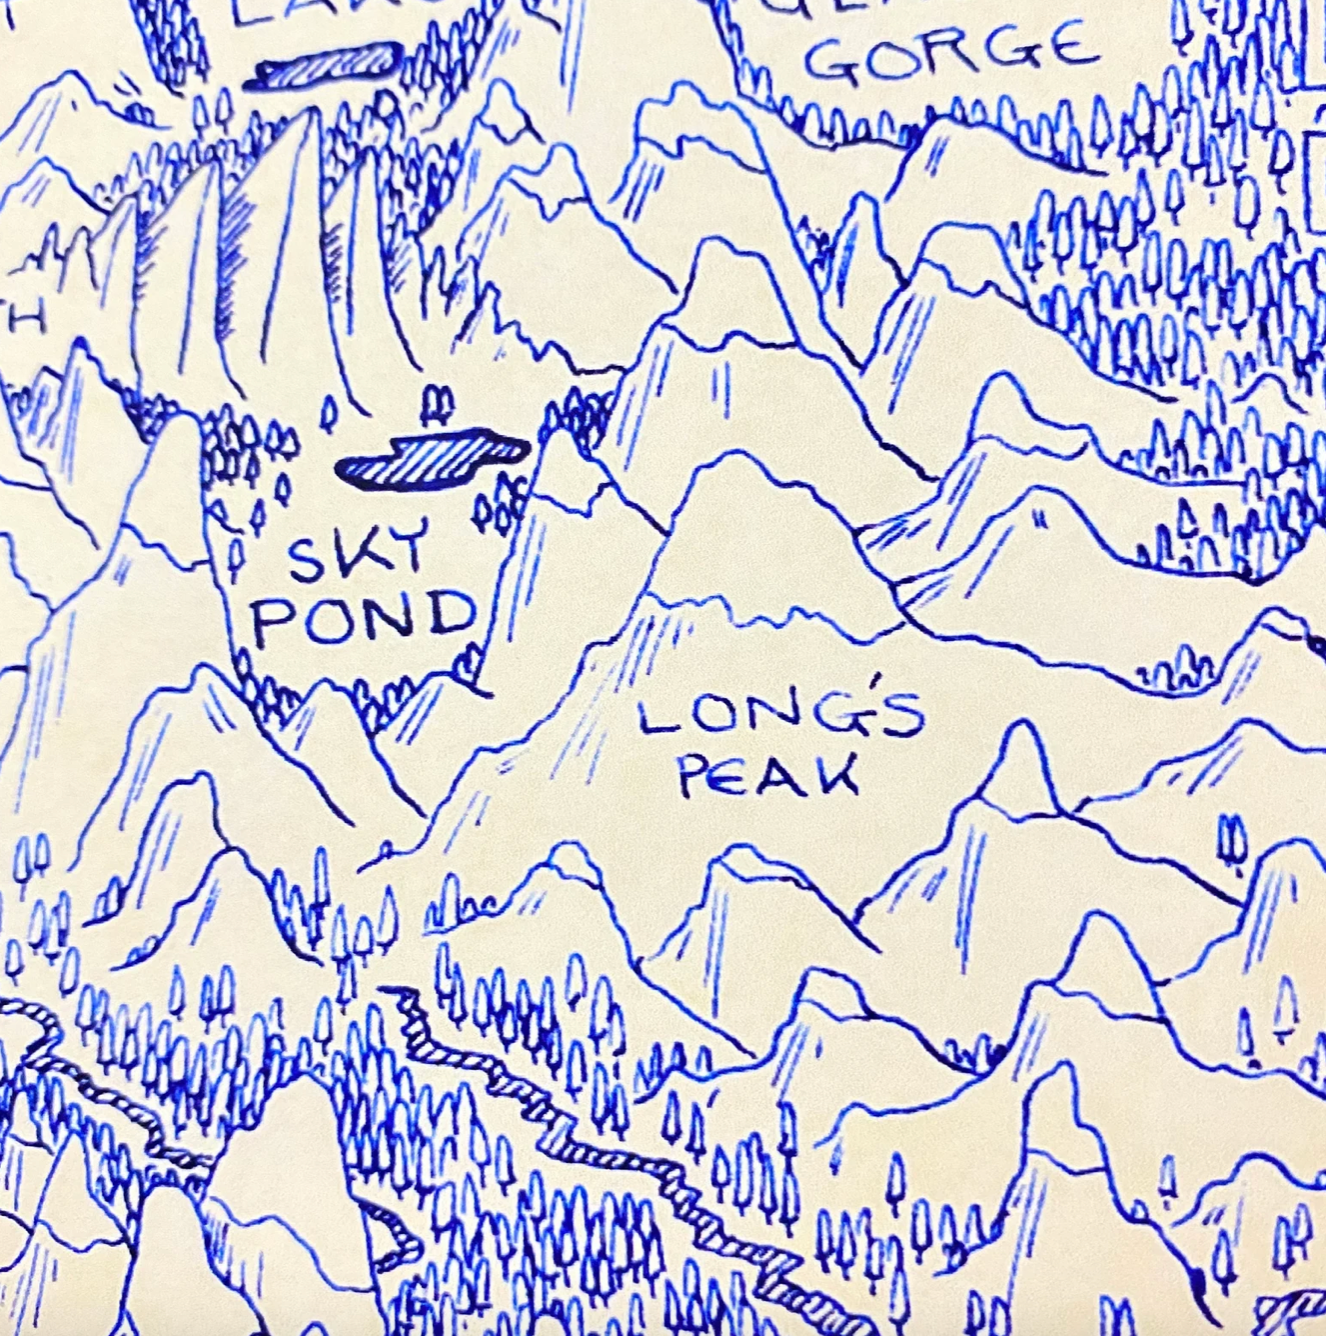 GORGE
SKY
POND
LONG'S
PEAK